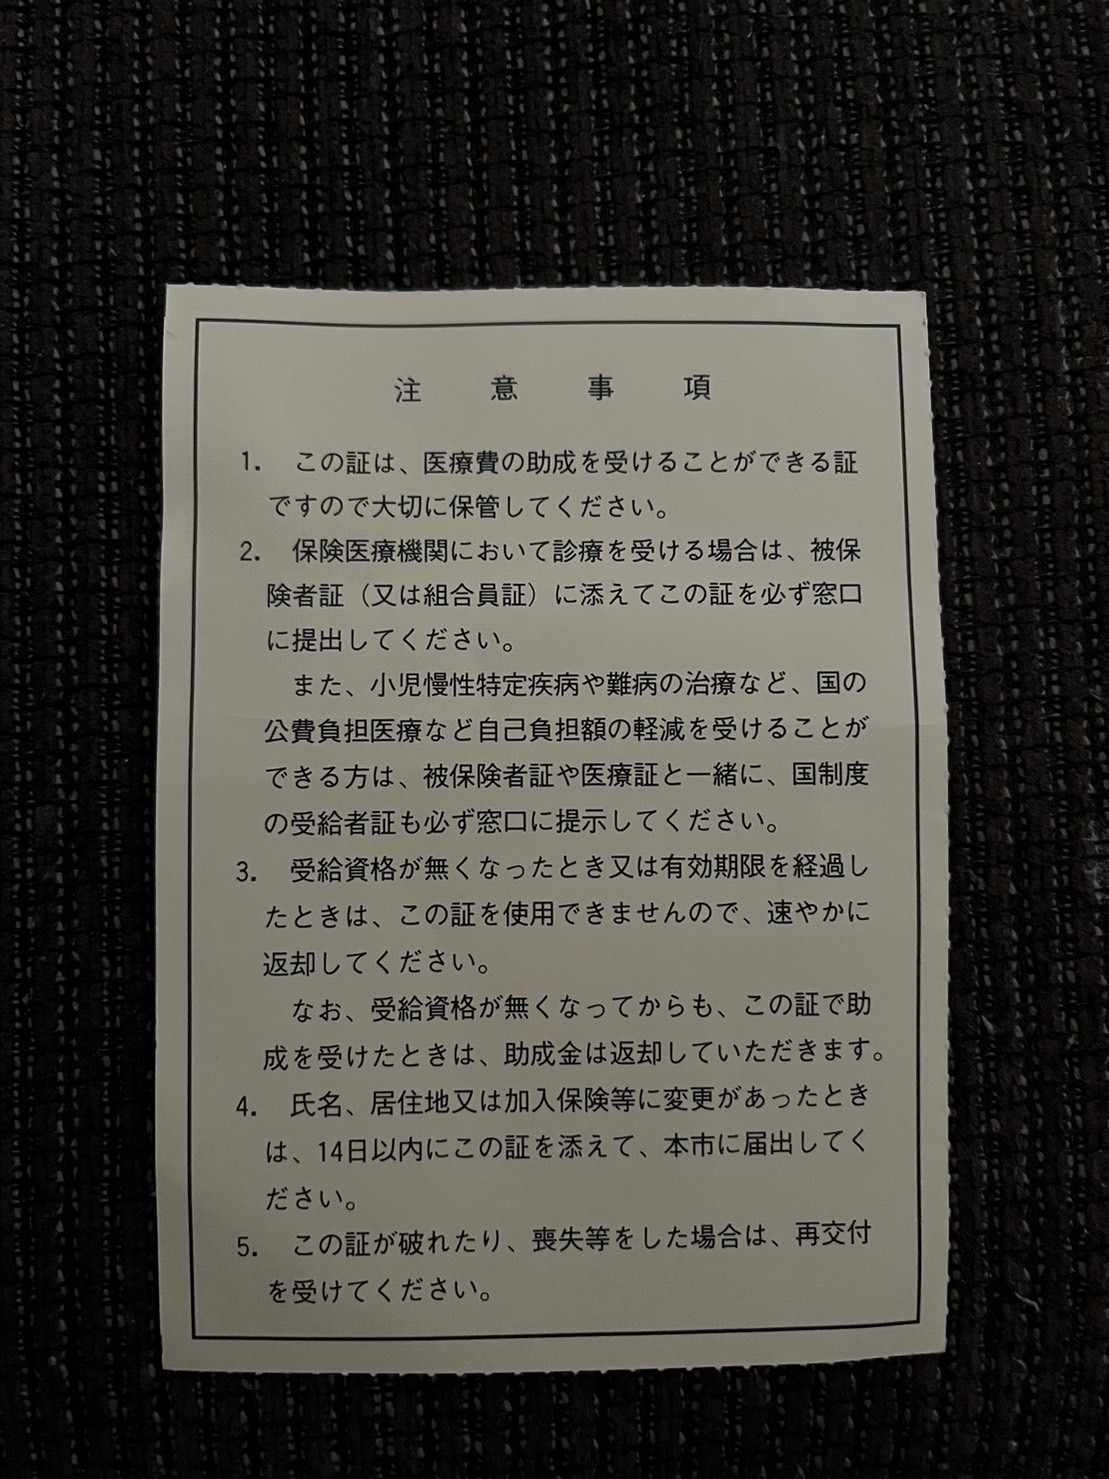 注意事項
1. この証は、医療費の助成を受けることができる証
ですので大切に保管してください。
2. 保険医療機関において診療を受ける場合は、被保
険者証（又は組合員証）に添えてこの証を必ず窓口
に提出してください。
また、小児慢性特定疾病や難病の治療など、国の
公費負担医療など自己負担額の軽減を受けることが
できる方は、被保険者証や医療証と一緒に、国制度
の受給者証も必ず窓口に提示してください。
3. 受給資格が無くなったとき又は有効期限を経過し
たときは、この証を使用できませんので、速やかに
返却してください。
なお、受給資格が無くなってからも、この証で助
成を受けたときは、助成金は返却していただきます。
4. 氏名、居住地又は加入保険等に変更があったとき
は、14日以内にこの証を添えて、本市に届出してく
ださい。
5. この証が破れたり、喪失等をした場合は、再交付
を受けてください。